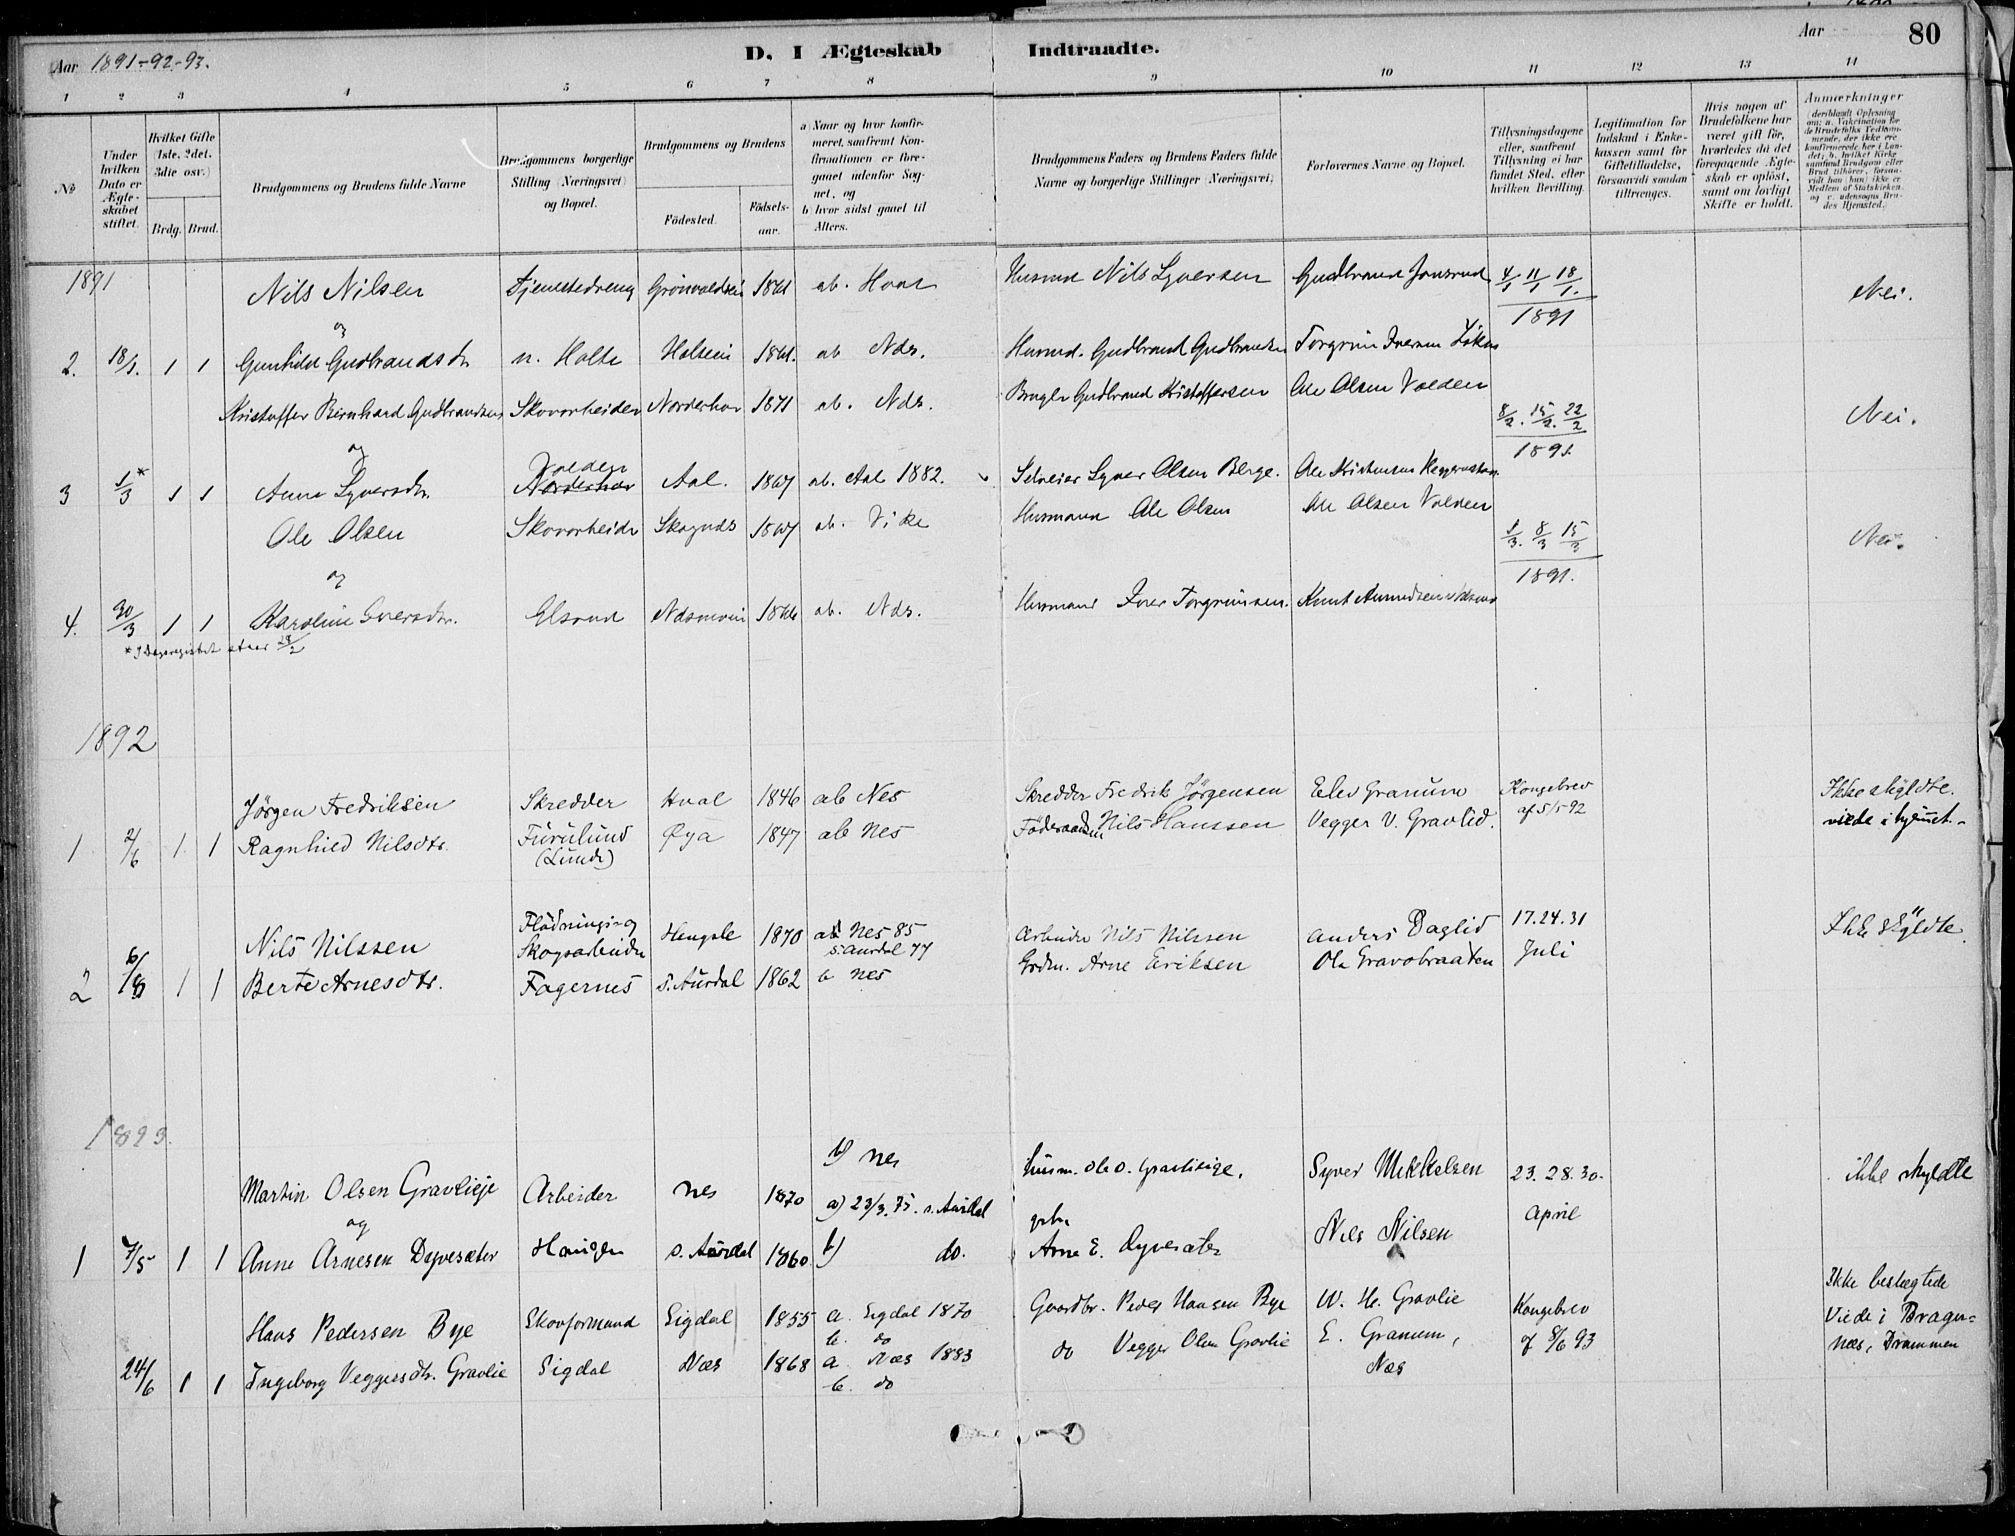 Aar 1891-92-93.
D. I Ægteskab Indtraadte.
Aar
80
1 2 3 4 5 6 7 8 9 10 11 12 13 14
No
Under hvilken Dato er Ægteskabet stiftet.
Hvilket Gifte (1ste, 2det, 3die osv.)
Brdg. Brud.
Brudgommens og Brudens fulde Navne
Brudgommens borgerlige Stilling (Næringsvei) og Bopæl.
Brudgommens og Brudens
Födested.
Födsels-aar.
a) Naar og hvor konfirmeret, saafremt Konfirmationen er foregaaet udenfor Sognet, og
b) hvor sidst gaaet til Alters.
Brudgommens Faders og Brudens Faders fulde Navne og borgerlige Stillinger (Næringsvei)
Forlovernes Navne og Bopæl.
Tillysningsdagene eller, saafremt Tillysning ei har fundet Sted, efter hvilken Bevilling.
Legitimation for Indskud i Enkekassen samt for Giftetilladelse, forsaavidt saadan tiltrænges.
Hvis nogen af Brudefolkene har været gift för, hvorledes da det foregaaende Ægteskab er oplöst, samt om lovligt Skifte er holdt.
Anmærkninger
(deriblandt Oplysning om: a. Vakcination for de Brudefolks Vedkommende, der ikke ere konfirmerede her i Landet; b. hvilket Kirkesamfund Brudgom eller Brud tilhörer, forsaavidt han (hun) ikke er Medlem af Statskirken, og c. udensogns Brudes Hjemsted.)
1891
Nils Nilsen Tjenestedreng 1861 ab. Hoal Husmd Nils Syversen Gudbrand Jonsrud 4/1 11/1 18/1 1891 Nei.
og
2. 18/1. 1 1 Gunhild Gudbrandsdr. n. Holte Holseie 1861. ab Nds. Husmd. Gudbrand Gudbrandsen Torgrim Iversen
Kristoffer Bernhard Gudbrandsen Skovarbeider Norderhov 1871 ab. Nds. Gudbrand Kristoffersen Ole Olsen Volden 8/2. 15/2. 22/2 1891. Nei.
og
3 1/3 * 1 1 Anne Syversdr. Volden Norderhov Aal. 1867 ab. Aal 1882. Selveier Syver Olsen Berge. Ole Kristensen
Ole Olsen Skovarbeider 1867 ab. Vike Husmand Ole Olsen Ole Olsen Volden 1/3. 8/3 15/3 1891. Nei.
og
4. 30/3 1 1 Karoline Iversdr. Elsrud 1866 ab. Nds. Husmand Iver Torgrimsen. Knut
* I Dagregistret staar 28/2
1892
Jörgen Fredriksen Skredder Hval 1846 ab Nes Skredder Fredrik Jörgensen Elev Granum Kongebrev Ikke skyldte.
1 2/6 1. 1 Ragnhild Nilsdtr. Furulund Øya 1847 ab Nes Föderaadsm Nils Hanssen Vegger V. Gravlid. af 5/5 92 viede i hjemmet.
(Lunde)
Flödnings- og
Nils Nilssen Skogsarbeider Hengsle 1870 ab Nes 85 Arbeider Nils Nilssen Anders Daglid 17. 24. 31 Ikke skyldte
S. Aurdal 77
2 6/8 1 1 Berte Arnesdtr. Fagernes S. Aurdal 1862 b Nes Grdm. Arne Eriksen Ola Gravobraaten Juli
1893.
b) Nes
Martin Olsen Gravlieje Arbeider Nes 1870 a) 23/3. 75. s. Aurdal husm. Ole O. Gravlieige. Syver Mikkelsen 23. 28. 30. April ikke skyldte
og
1 7/5 1 1 Anne Arnesen Dyvesæter Haugen S. Aurdal 1860 b) do. Arne E. Dyvesæter Nels Nilsen
Hans Pedersen Bye Skovformand Sigdal 1855 a. Sigdal 1870 b. do Gaardbr. Peder Hansen Bye W. H. Gravlie Kongebrev Ikke beslægtede
24/6 1 1 Ingeborg Veggersdtr. Gravlie Sigdal Næs 1868 a Næs 1883 b. do do Vegger Olsen Gravlie E. Granum, Næs af 8/6 93 Viede i Bragernæs, Drammen